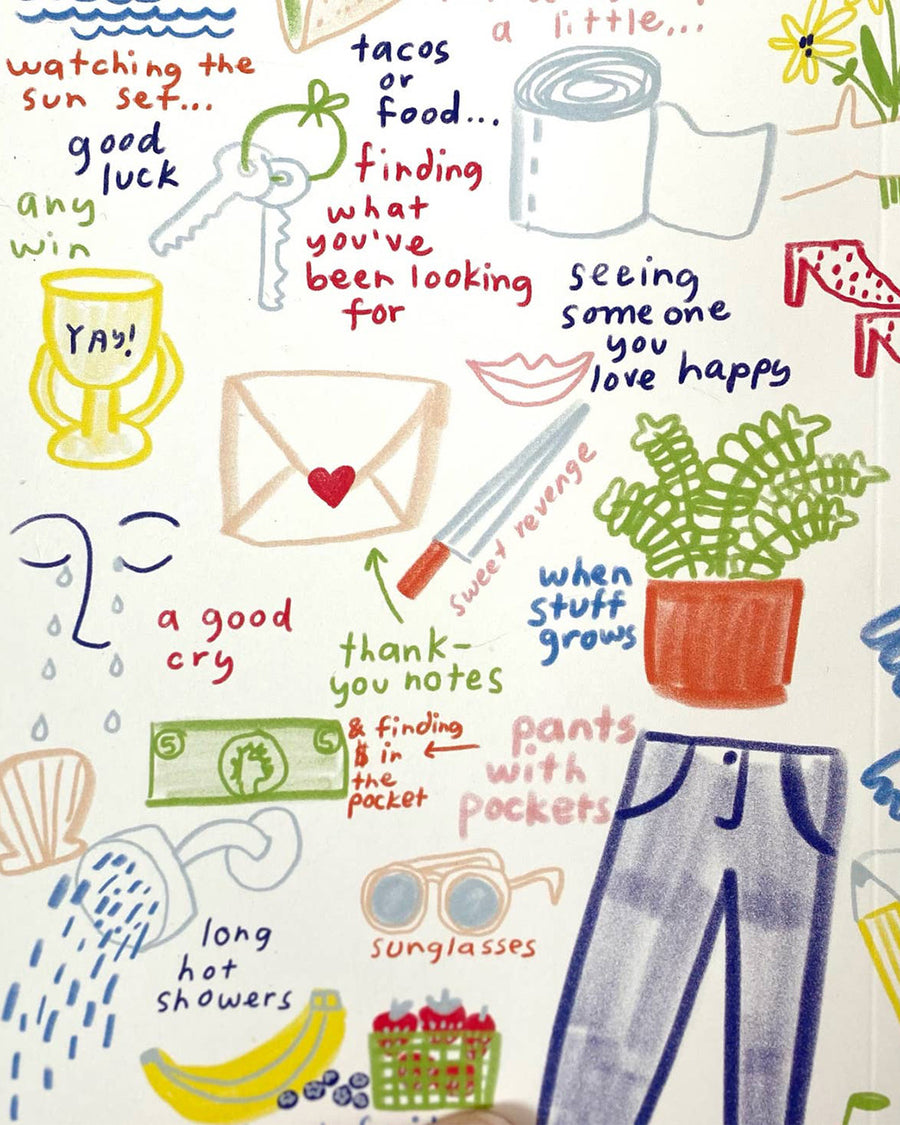 a little...
watching the
sun set...
tacos
or
food...
good
luck
any
win
finding
what
you've
been looking
for
YAY!
seeing
some one
you
love happy
sweet revenge
when
stuff
grows
a good
cry
thank-
you notes
5
5
& finding
$ in
the
pocket
pants
with
pockets
long
hot
showers
sunglasses